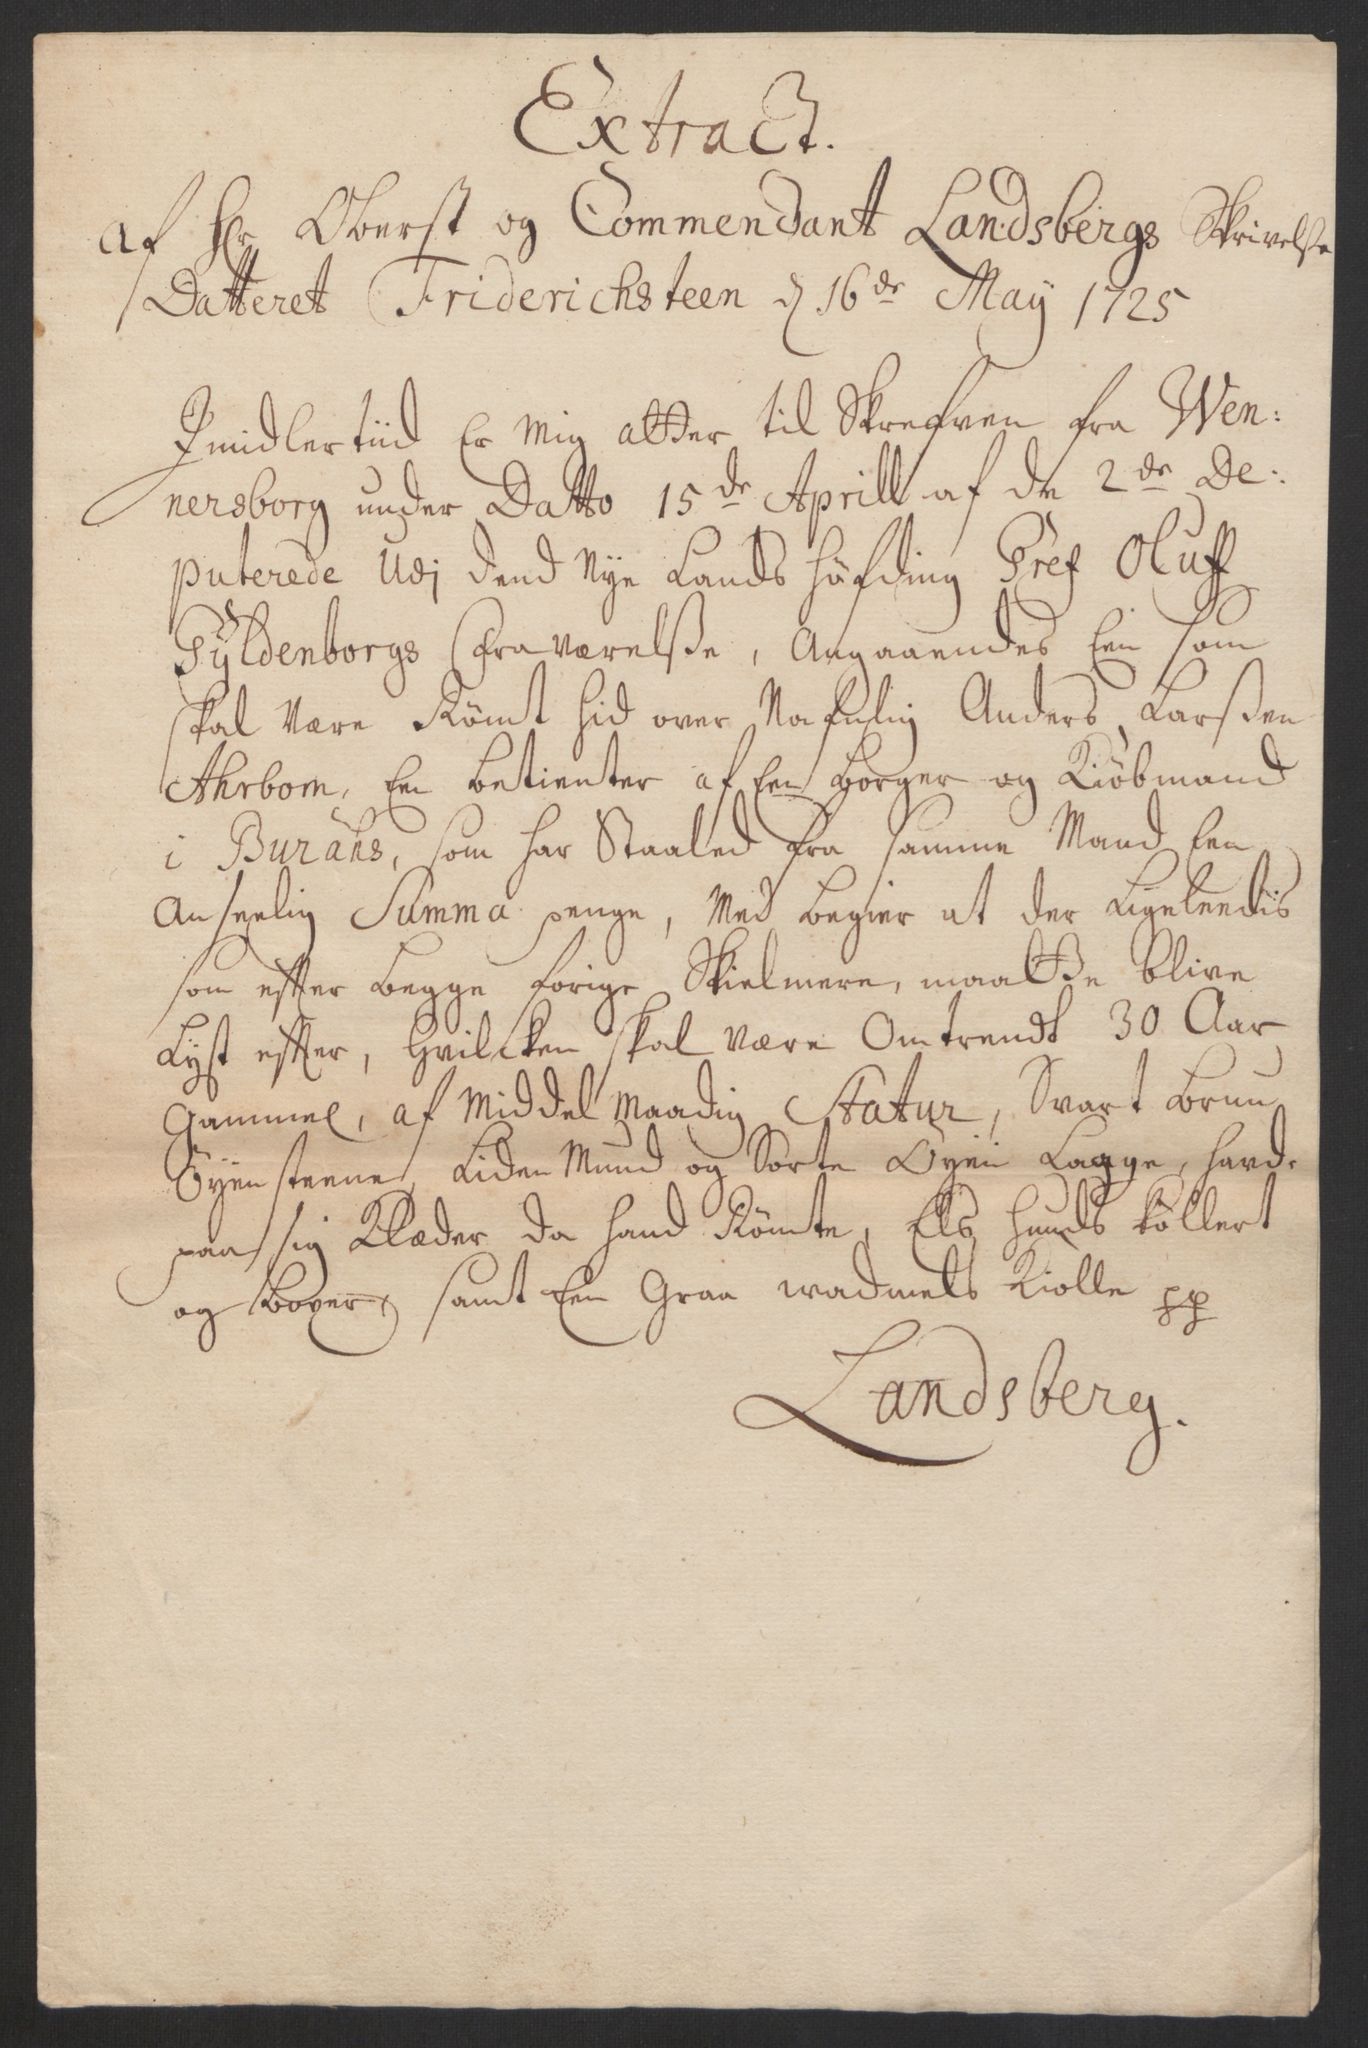 Extract.
af Hr Oberst og Commendant Landsbergs Skrivelse
Datteret Friderichsteen d 16de May 1725
Imidlertiid Er mig atter til Skrefven fra Wen:
nersborg under Datto 15de Aprill af de 2de De:
puterede Udj dend Nye Lands höfding Gref Oluff
Gyldenborgs fraværelsse, Angaaendes Een som
skal være Römt hid over Nafnlig Anders Larssen
Ahrbom, En betienter af Een borger og Kiöbmand
i Burahs, som har Staaled fra samme Mand Een
Anseelig Summa penge, Med begier at der Ligeleedis
som efter begge forige Skielmere, maatte blive
Lyst efter, hvilcken skal være Omtrendt 30 Aar
Gammel, af Middelmaadig Statur, Svart brun
Öyensteene, Liden Mund og Sorte Öyen Lagge, havde
paa sig Klæder da hand Römte, Elshuuds köllert
og boxer, samt Een Graa wadmels Kiolle pp
Landsberg.